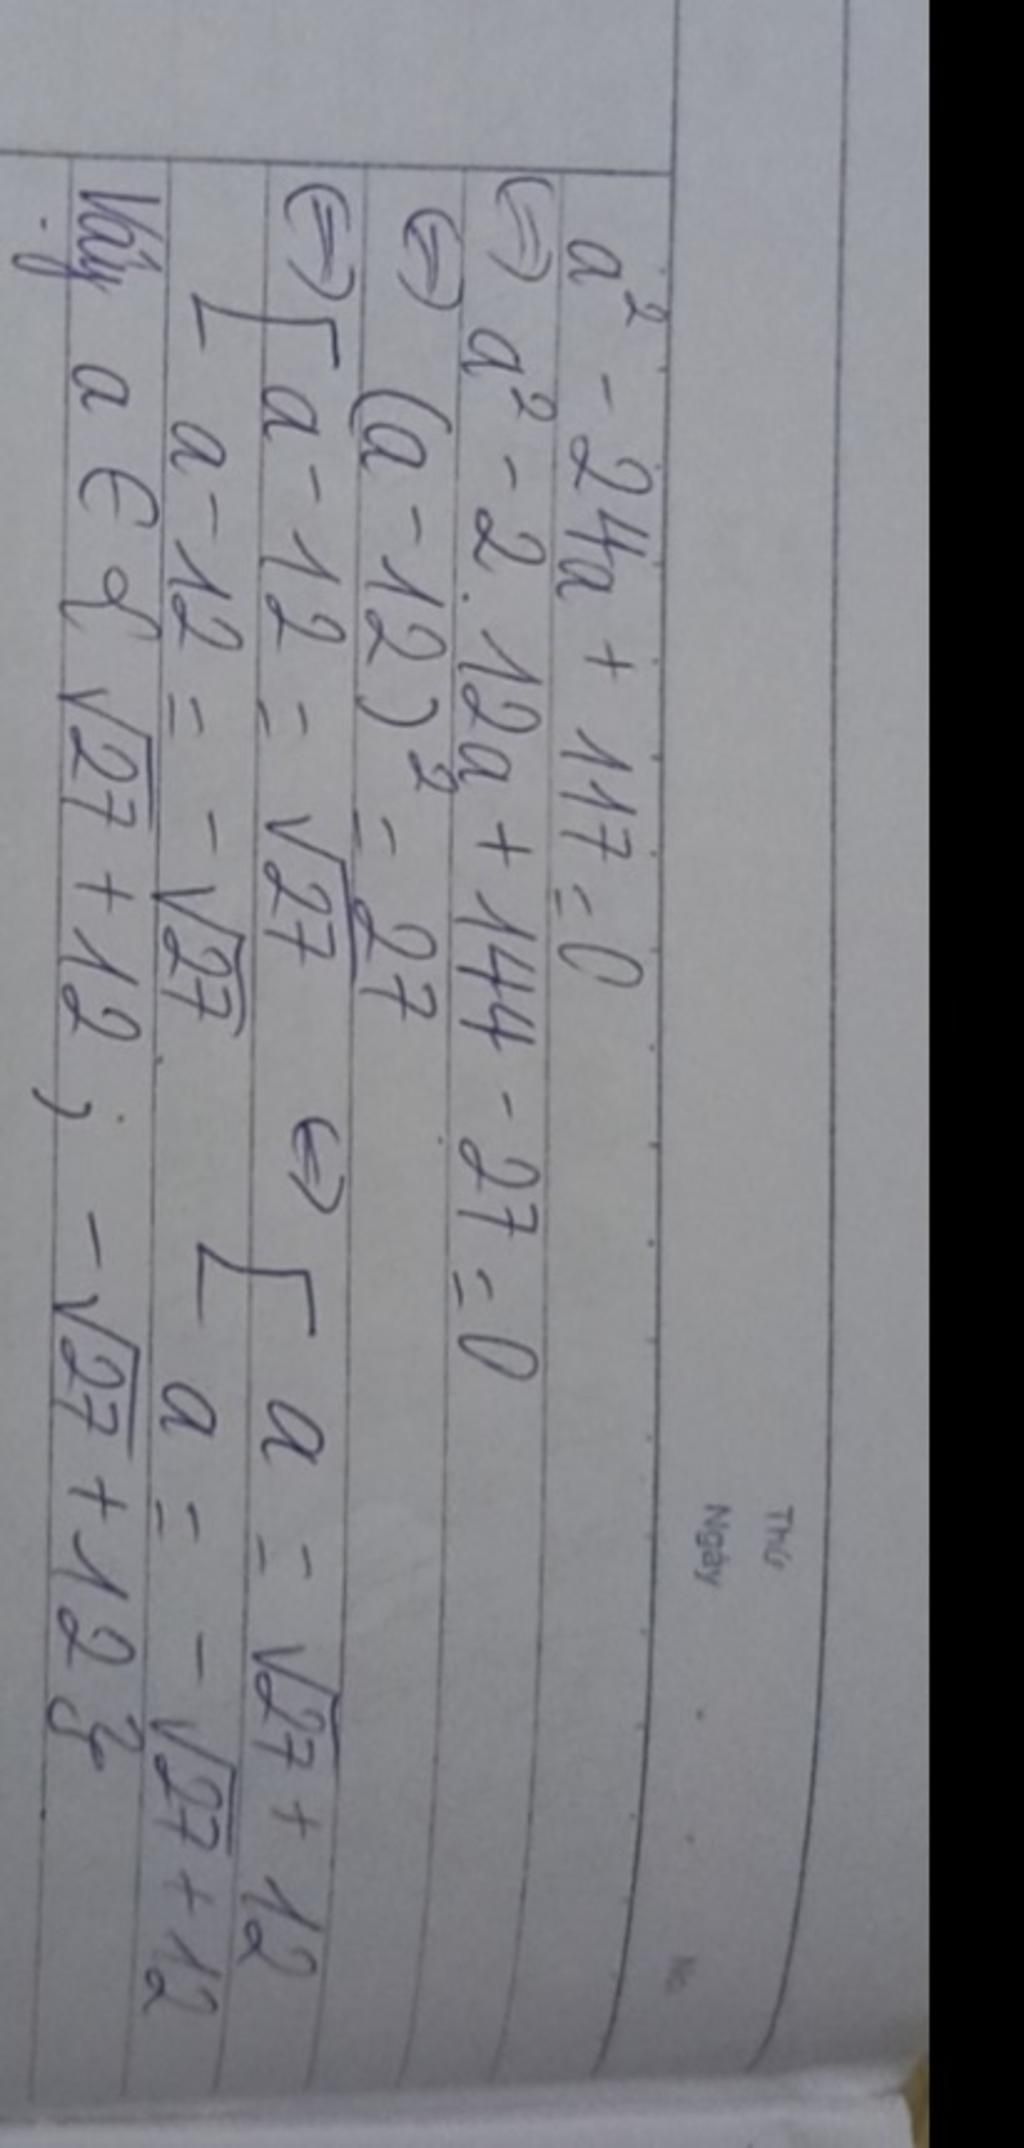 Thứ
Ngày
No.
a² - 24a + 117 = 0
⇔ a² - 2.12a + 144 - 27 = 0
⇔ (a - 12)² = 27
⇔ [ a - 12 = √27 ⇔ [ a = √27 + 12
a - 12 = - √27 a = - √27 + 12
Vậy a ∈ { √27 + 12 ; - √27 + 12 }